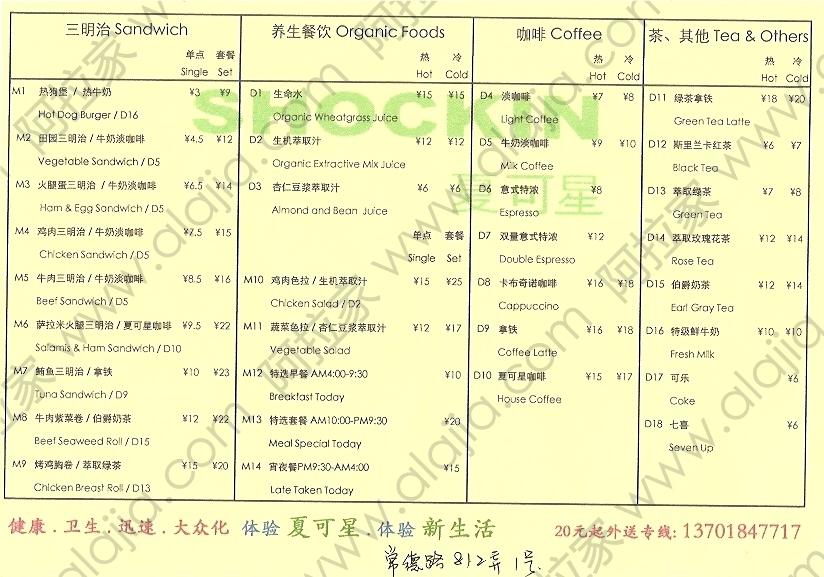 三明治 Sandwich
单点 套餐
Single Set
M1 热狗堡 / 热牛奶 ¥3 ¥9
Hot Dog Burger / D16
M2 田园三明治 / 牛奶淡咖啡 ¥4.5 ¥12
Vegetable Sandwich / D5
M3 火腿蛋三明治 / 牛奶淡咖啡 ¥6.5 ¥14
Ham & Egg Sandwich / D5
M4 鸡肉三明治 / 牛奶淡咖啡 ¥7.5 ¥15
Chicken Sandwich / D5
M5 牛肉三明治 / 牛奶淡咖啡 ¥8.5 ¥16
Beef Sandwich / D5
M6 萨拉米火腿三明治 / 夏可星咖啡 ¥9.5 ¥22
Salamis & Ham Sandwich / D10
M7 鲔鱼三明治 / 拿铁 ¥10 ¥23
Tuna Sandwich / D9
M8 牛肉紫菜卷 / 伯爵奶茶 ¥12 ¥22
Beef Seaweed Roll / D15
M9 烤鸡胸卷 / 萃取绿茶 ¥15 ¥20
Chicken Breast Roll / D13
养生餐饮 Organic Foods
热 冷
Hot Cold
D1 生命水 ¥15 ¥15
Organic Wheatgrass Juice
D2 生机萃取汁 ¥12 ¥12
Organic Extractive Mix Juice
D3 杏仁豆浆萃取汁 ¥6 ¥6
Almond and Bean Juice
单点 套餐
Single Set
M10 鸡肉色拉 / 生机萃取汁 ¥15 ¥25
Chicken Salad / D2
M11 蔬菜色拉 / 杏仁豆浆萃取汁 ¥12 ¥17
Vegetable Salad
M12 特选早餐 AM4:00-9:30 ¥10
Breakfast Today
M13 特选套餐 AM10:00-PM9:30 ¥20
Meal Special Today
M14 宵夜餐PM9:30-AM4:00 ¥15
Late Taken Today
咖啡 Coffee
热 冷
Hot Cold
D4 淡咖啡 ¥7 ¥8
Light Coffee
D5 牛奶淡咖啡 ¥9 ¥10
Milk Coffee
D6 意式特浓 ¥8
Espresso
D7 双量意式特浓 ¥12
Double Espresso
D8 卡布奇诺咖啡 ¥16 ¥18
Cappuccino
D9 拿铁 ¥16 ¥18
Coffee Latte
D10 夏可星咖啡 ¥15 ¥17
House Coffee
茶、其他 Tea & Others
热 冷
Hot Cold
D11 绿茶拿铁 ¥18 ¥20
Green Tea Latte
D12 斯里兰卡红茶 ¥6 ¥7
Black Tea
D13 萃取绿茶 ¥7 ¥8
Green Tea
D14 萃取玫瑰花茶 ¥12 ¥14
Rose Tea
D15 伯爵奶茶 ¥12 ¥14
Earl Gray Tea
D16 特级鲜牛奶 ¥10 ¥10
Fresh Milk
D17 可乐 ¥6
Coke
D18 七喜 ¥6
Seven Up
SHOCKIN
夏可星
健康 . 卫生 . 迅速 . 大众化 体验 夏可星 . 体验 新生活 20元起外送专线: 13701847717
常德路 812弄 1号
阿拉家 www.alajia.com